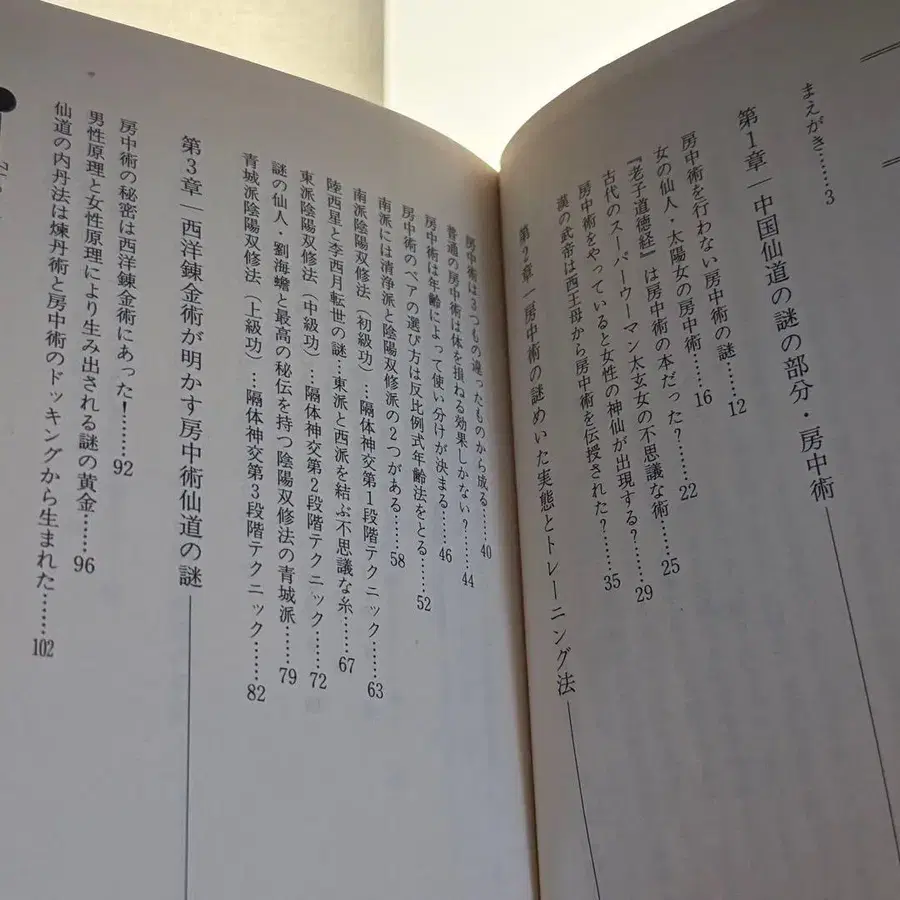 まえがき……3
第1章―中国仙道の謎の部分・房中術
房中術を行わない房中術の謎……12
女の仙人・太陽女の房中術……16
『老子道徳経』は房中術の本だった?……22
古代のスーパーウーマン太玄女の不思議な術……25
房中術をやっていると女性の神仙が出現する?……29
漢の武帝は西王母から房中術を伝授された?……35
第2章―房中術の謎めいた実態とトレーニング法
房中術は3つもの違ったものから成る……40
普通の房中術は体を損ねる効果しかない?……44
房中術は年齢によって使い分けが決まる……46
房中術のペアの選び方は反比例式年齢法をとる……52
南派には清浄派と陰陽双修派の2つがある……58
南派陰陽双修法(初級功)…隔体神交第1段階テクニック……63
陸西星と李西月転世の謎…東派と西派を結ぶ不思議な糸……67
東派陰陽双修法(中級功)…隔体神交第2段階テクニック……72
謎の仙人・劉海蟾と最高の秘伝を持つ陰陽双修法の青城派……79
青城派陰陽双修法(上級功)…隔体神交第3段階テクニック……82
第3章―西洋錬金術が明かす房中術仙道の謎
房中術の秘密は西洋錬金術にあった!……92
男性原理と女性原理により生み出される謎の黄金……96
仙道の内丹法は煉丹術と房中術のドッキングから生まれた……102